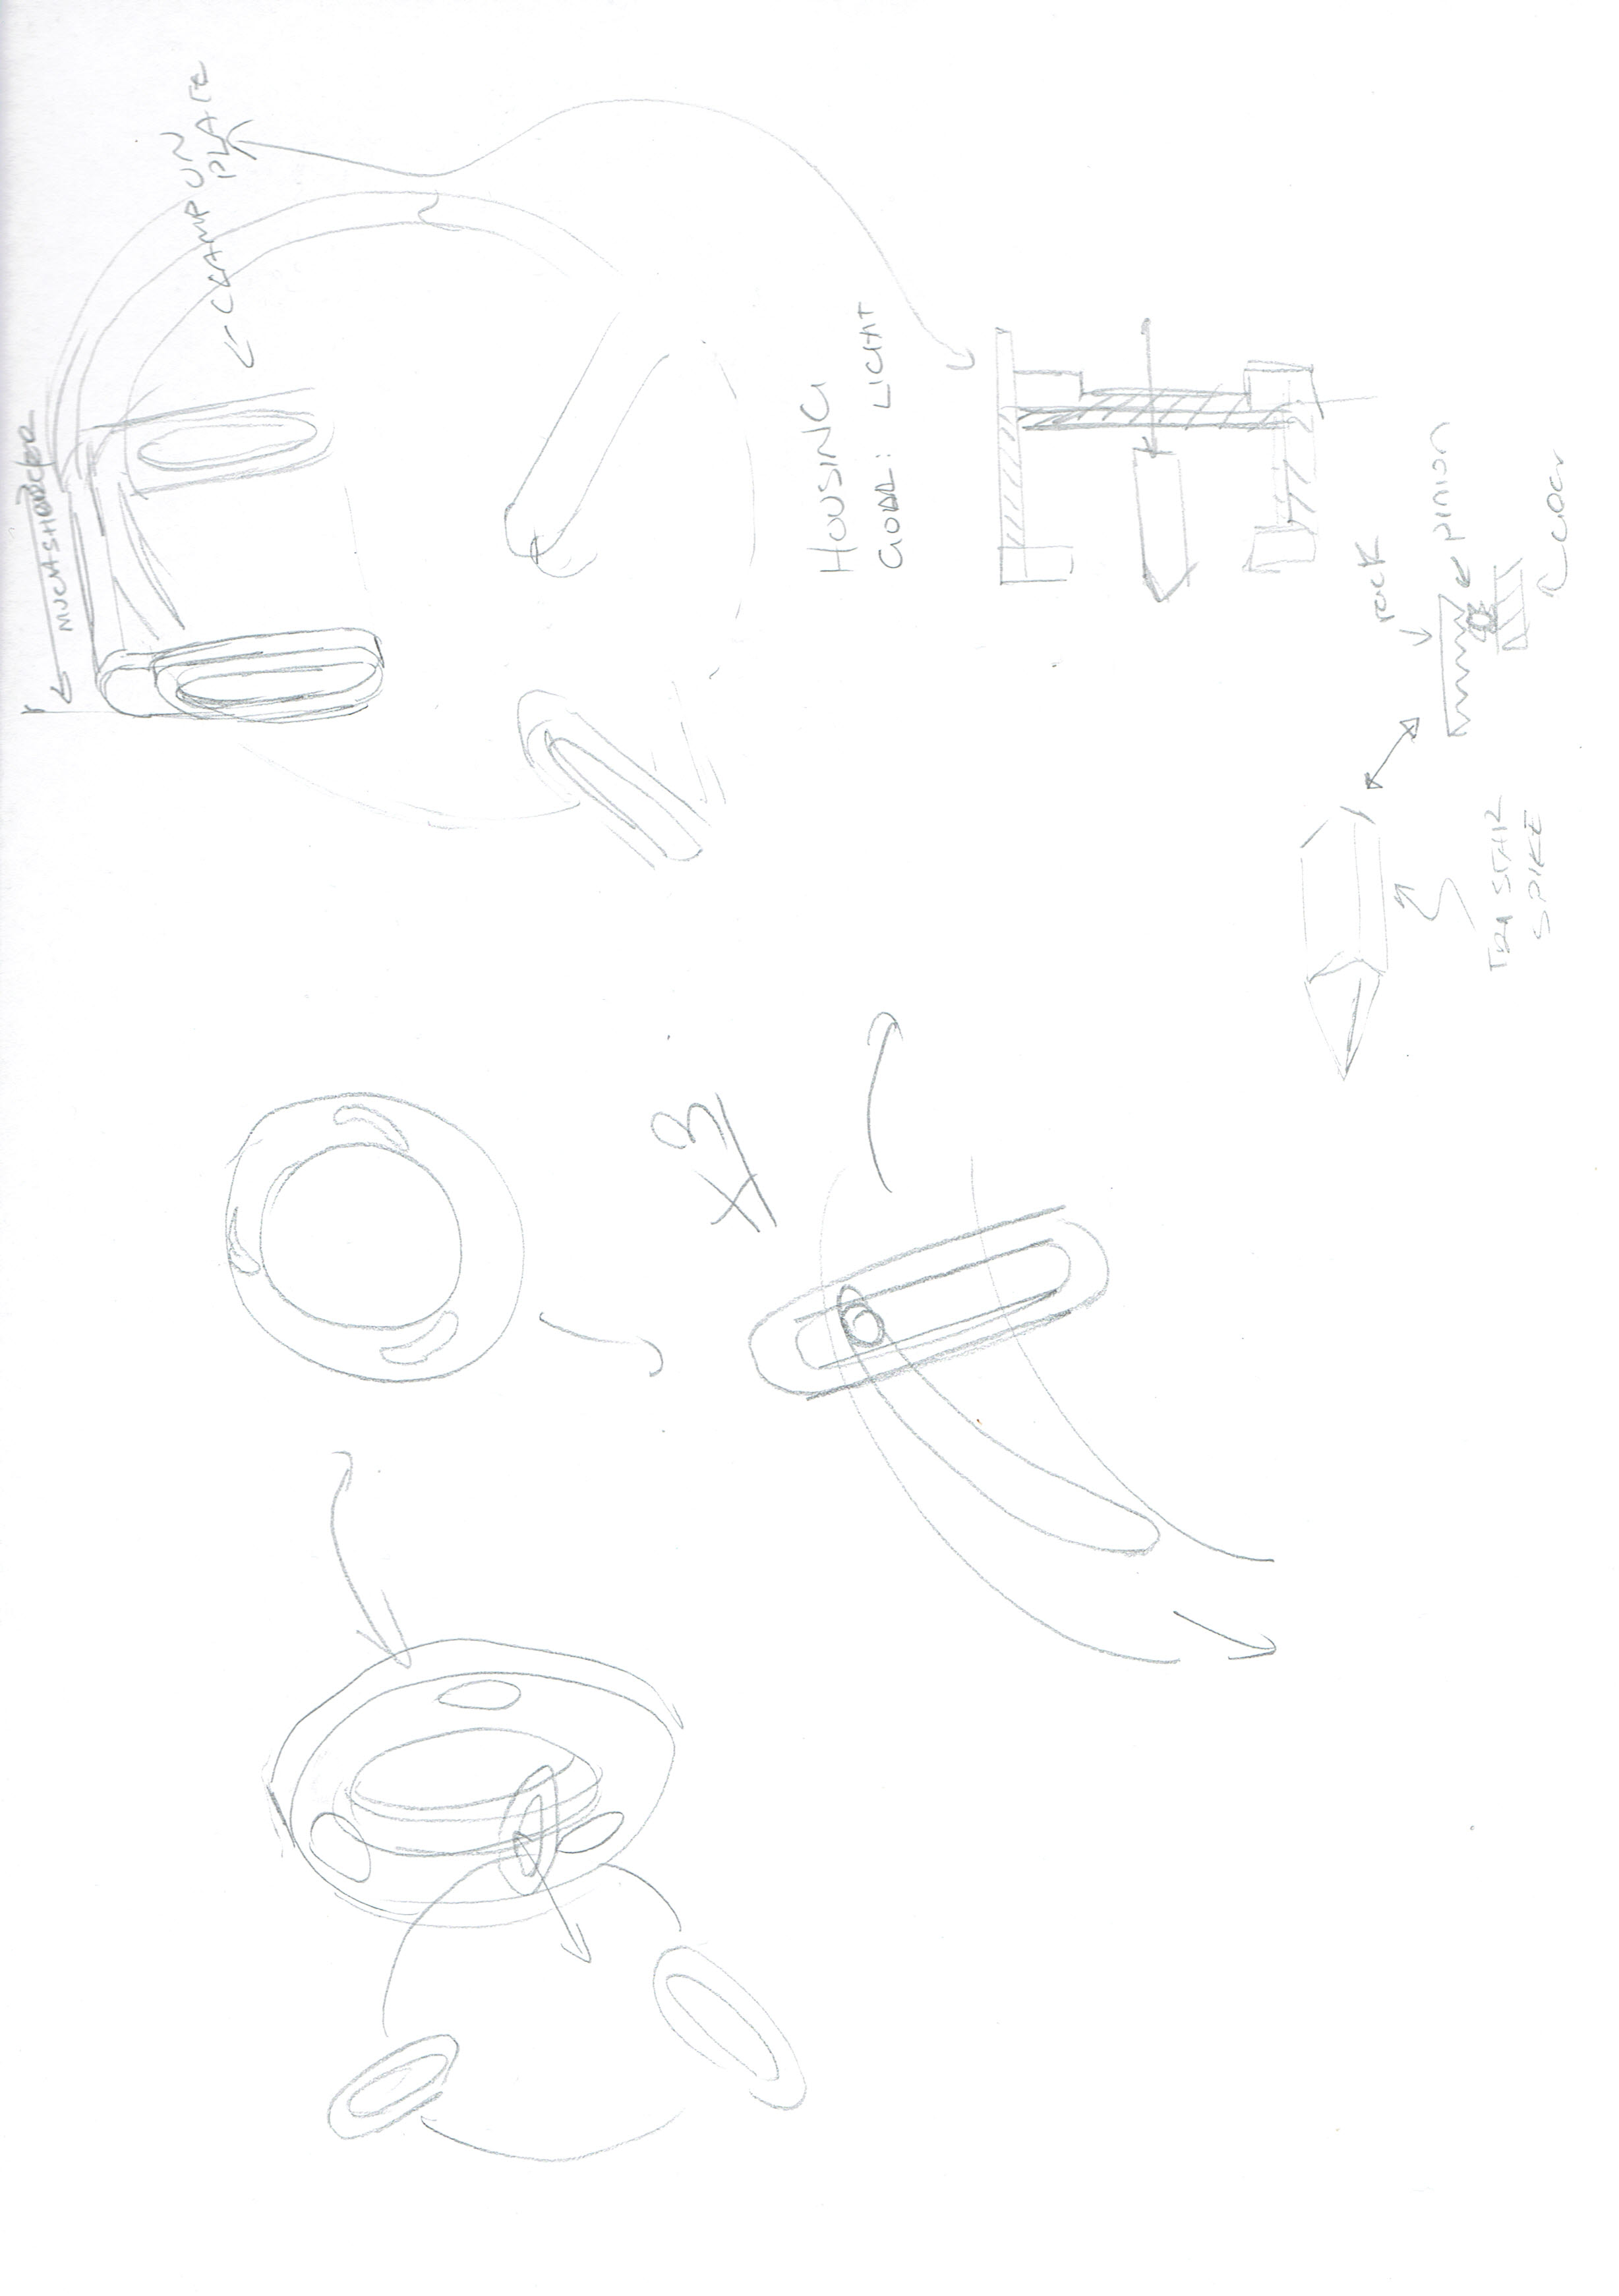 MUCH SHORTER
CLAMP ON
PLATE
X3
HOUSING
GOAL: LIGHT
rack
pinion
TRI STAR
SPIKE